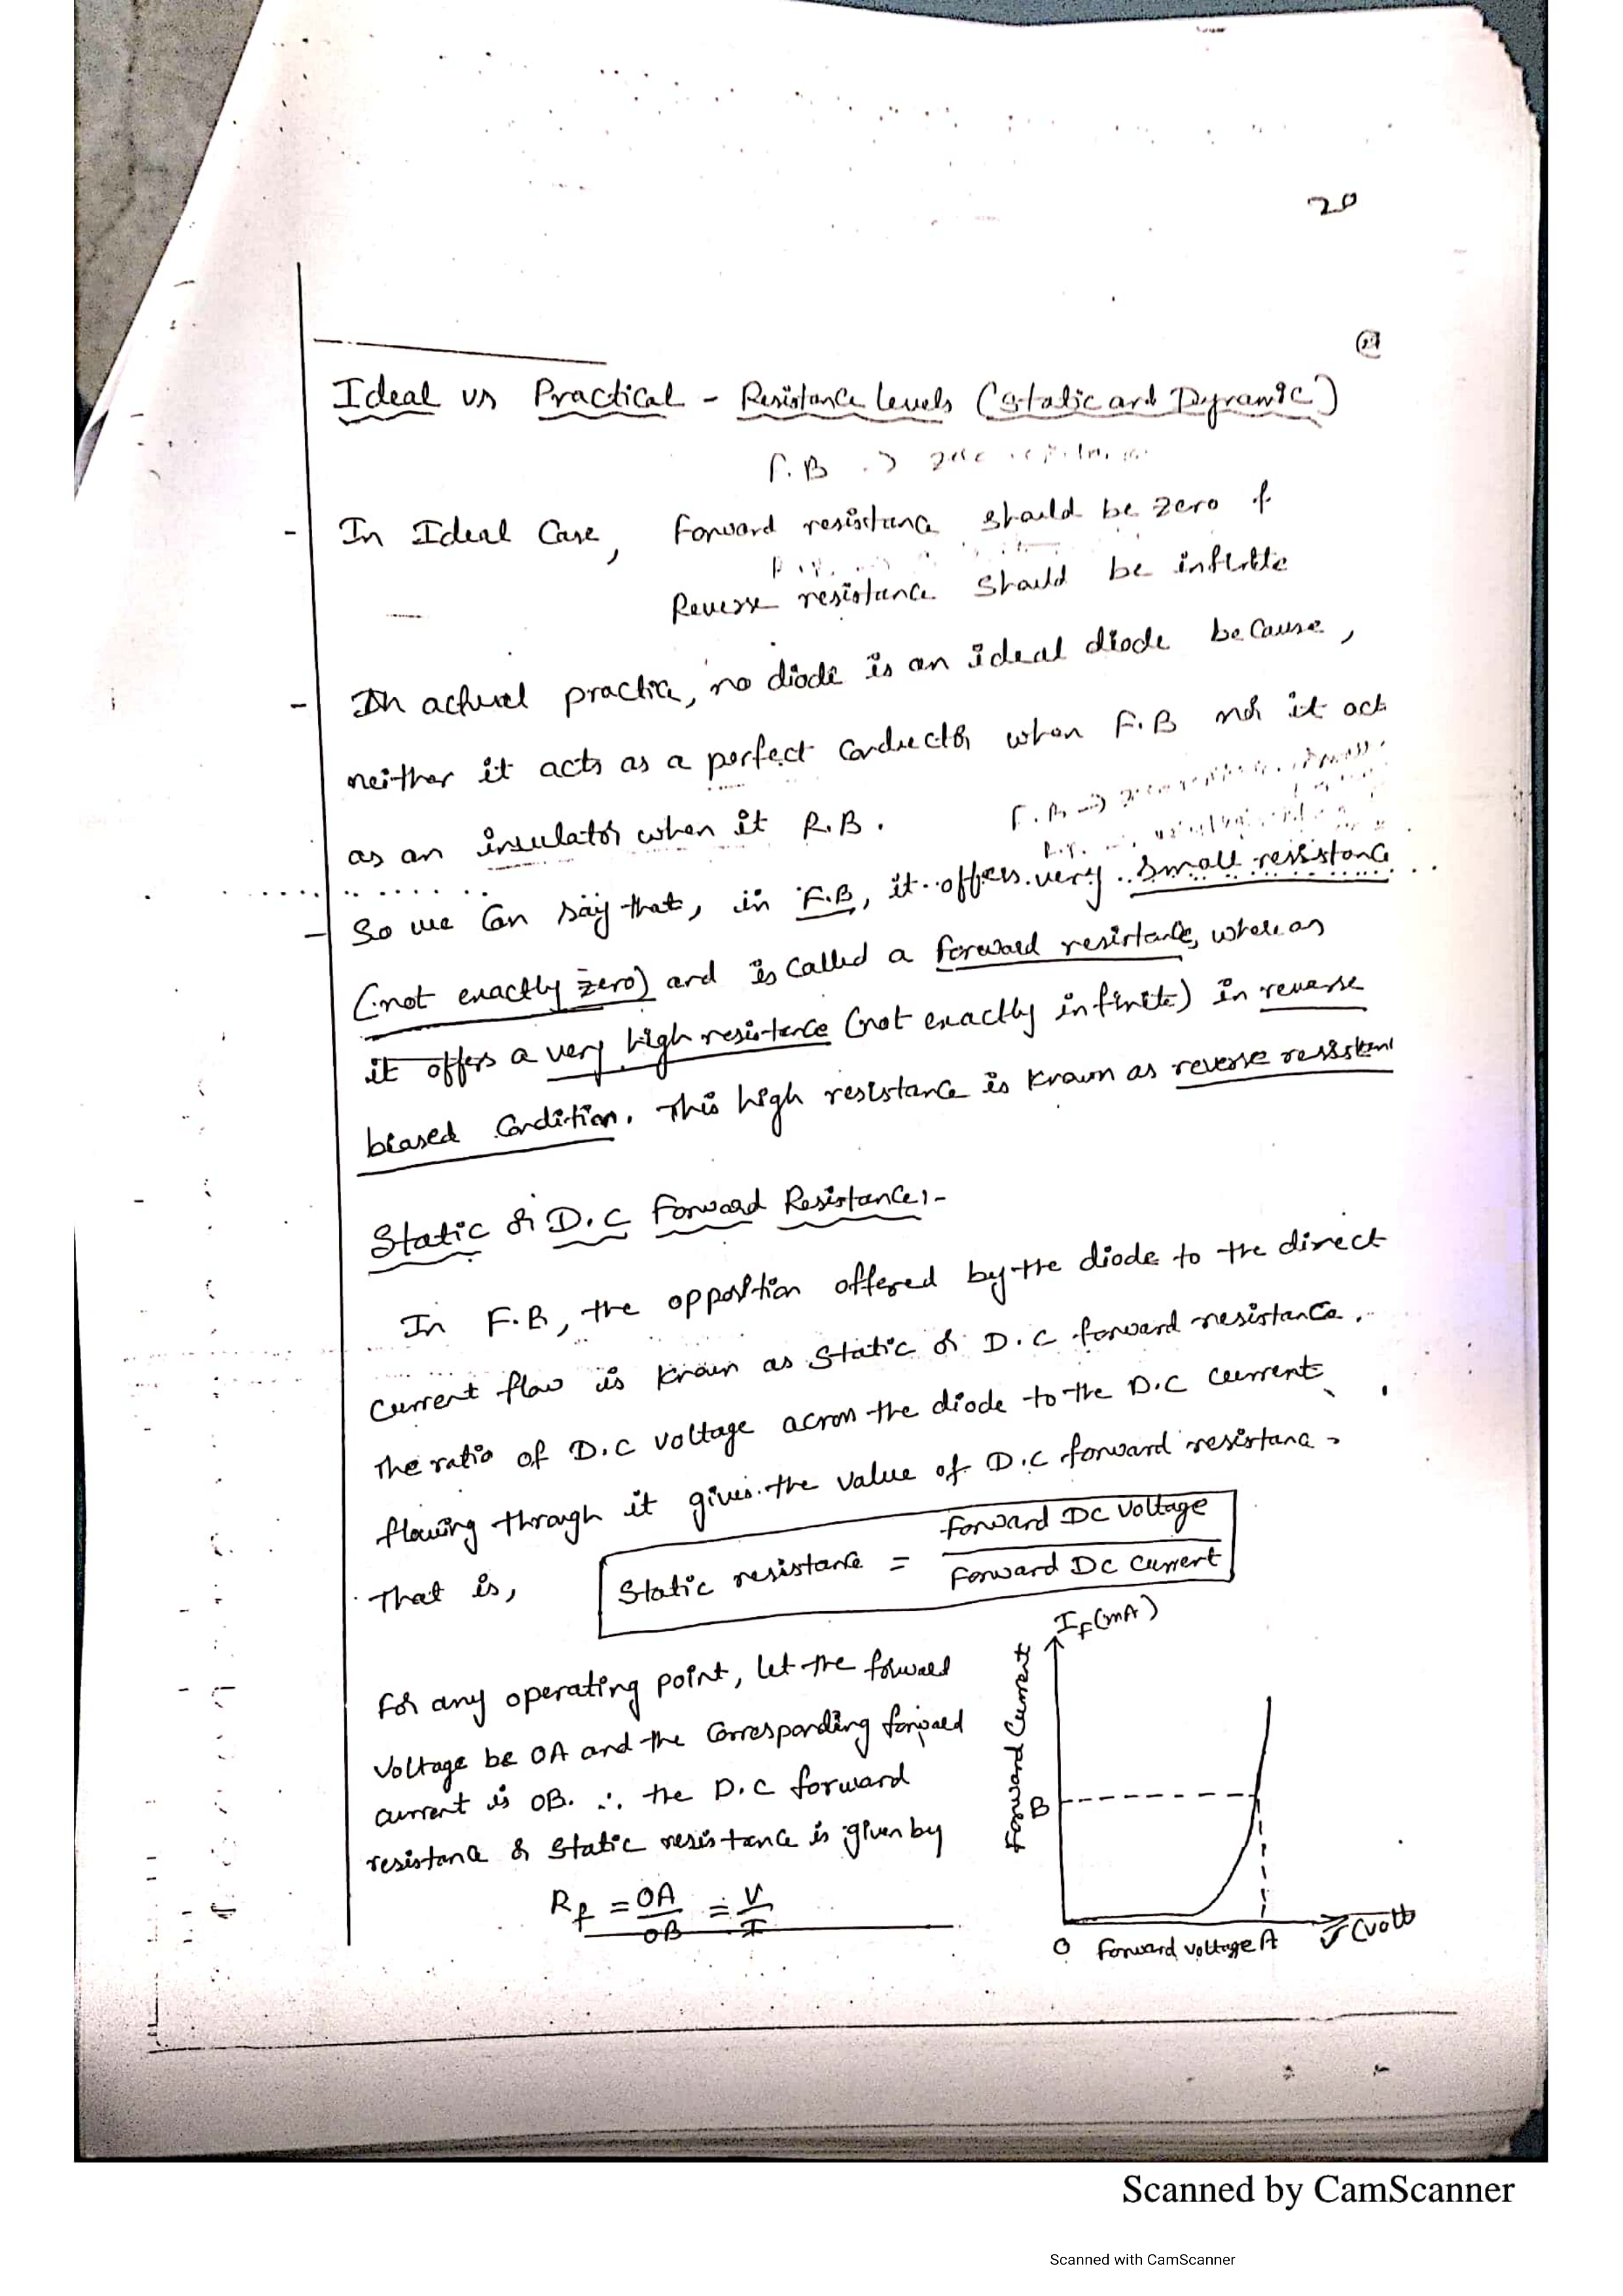 20
27
Ideal vs Practical - Resistance levels (Static and Dynamic)
F.B →
- In Ideal Case, Forward resistance should be zero &
Reverse resistance should be infinite
- In actual practice, no diode is an ideal diode because,
neither it acts as a perfect conductor when F.B nor it act
as an insulator when it R.B.
F.B →
- So we can say that, in F.B, it offers very small resistance
(not exactly zero) and is called a forward resistance, whereas
it offers a very high resistance (not exactly infinite) in reverse
biased condition. This high resistance is known as reverse resistant
Static or D.C Forward Resistance:-
In F.B, the opposition offered by the diode to the direct
current flow is known as static or D.C forward resistance.
The ratio of D.C voltage across the diode to the D.C current
flowing through it gives the value of D.C forward resistance.
That is, Static resistance = Forward DC Voltage / Forward DC Current
For any operating point, let the forward
voltage be OA and the corresponding forward
current is OB. ∴ the D.C forward
resistance or static resistance is given by
R_f = OA/OB = V/I
I_F(mA)
Forward Current
B
O Forward voltage A
(volt
Scanned by CamScanner
Scanned with CamScanner